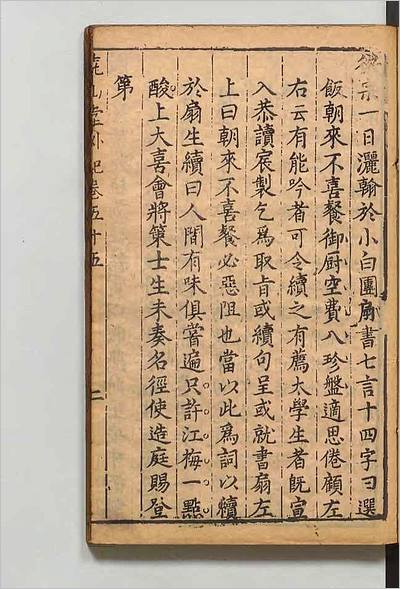 徽宗一日灑翰於小白團扇書七言十四字曰選
飯朝來不喜餐御厨空費八珍盤適思倦顧左
右云有能吟者可令續之有薦大學生者既宣
入恭讀宸製乞爲取旨或續句呈或就書扇左
上曰朝來不喜餐必惡阻也當以此爲詞以續
於扇生續曰人間有味俱嘗遍只許江梅一點
酸上大喜會將策士生未奏名徑使造庭賜登
第
堯山堂外紀卷五十五 二